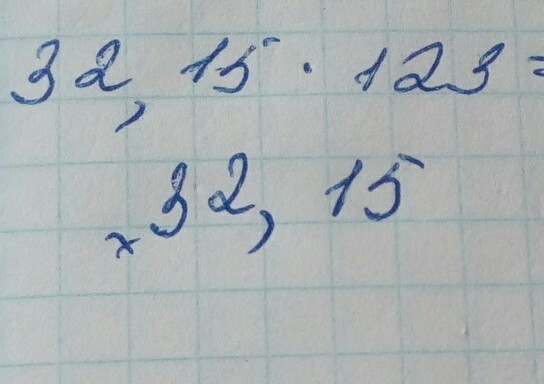 32, 15 · 123 =
× 32, 15